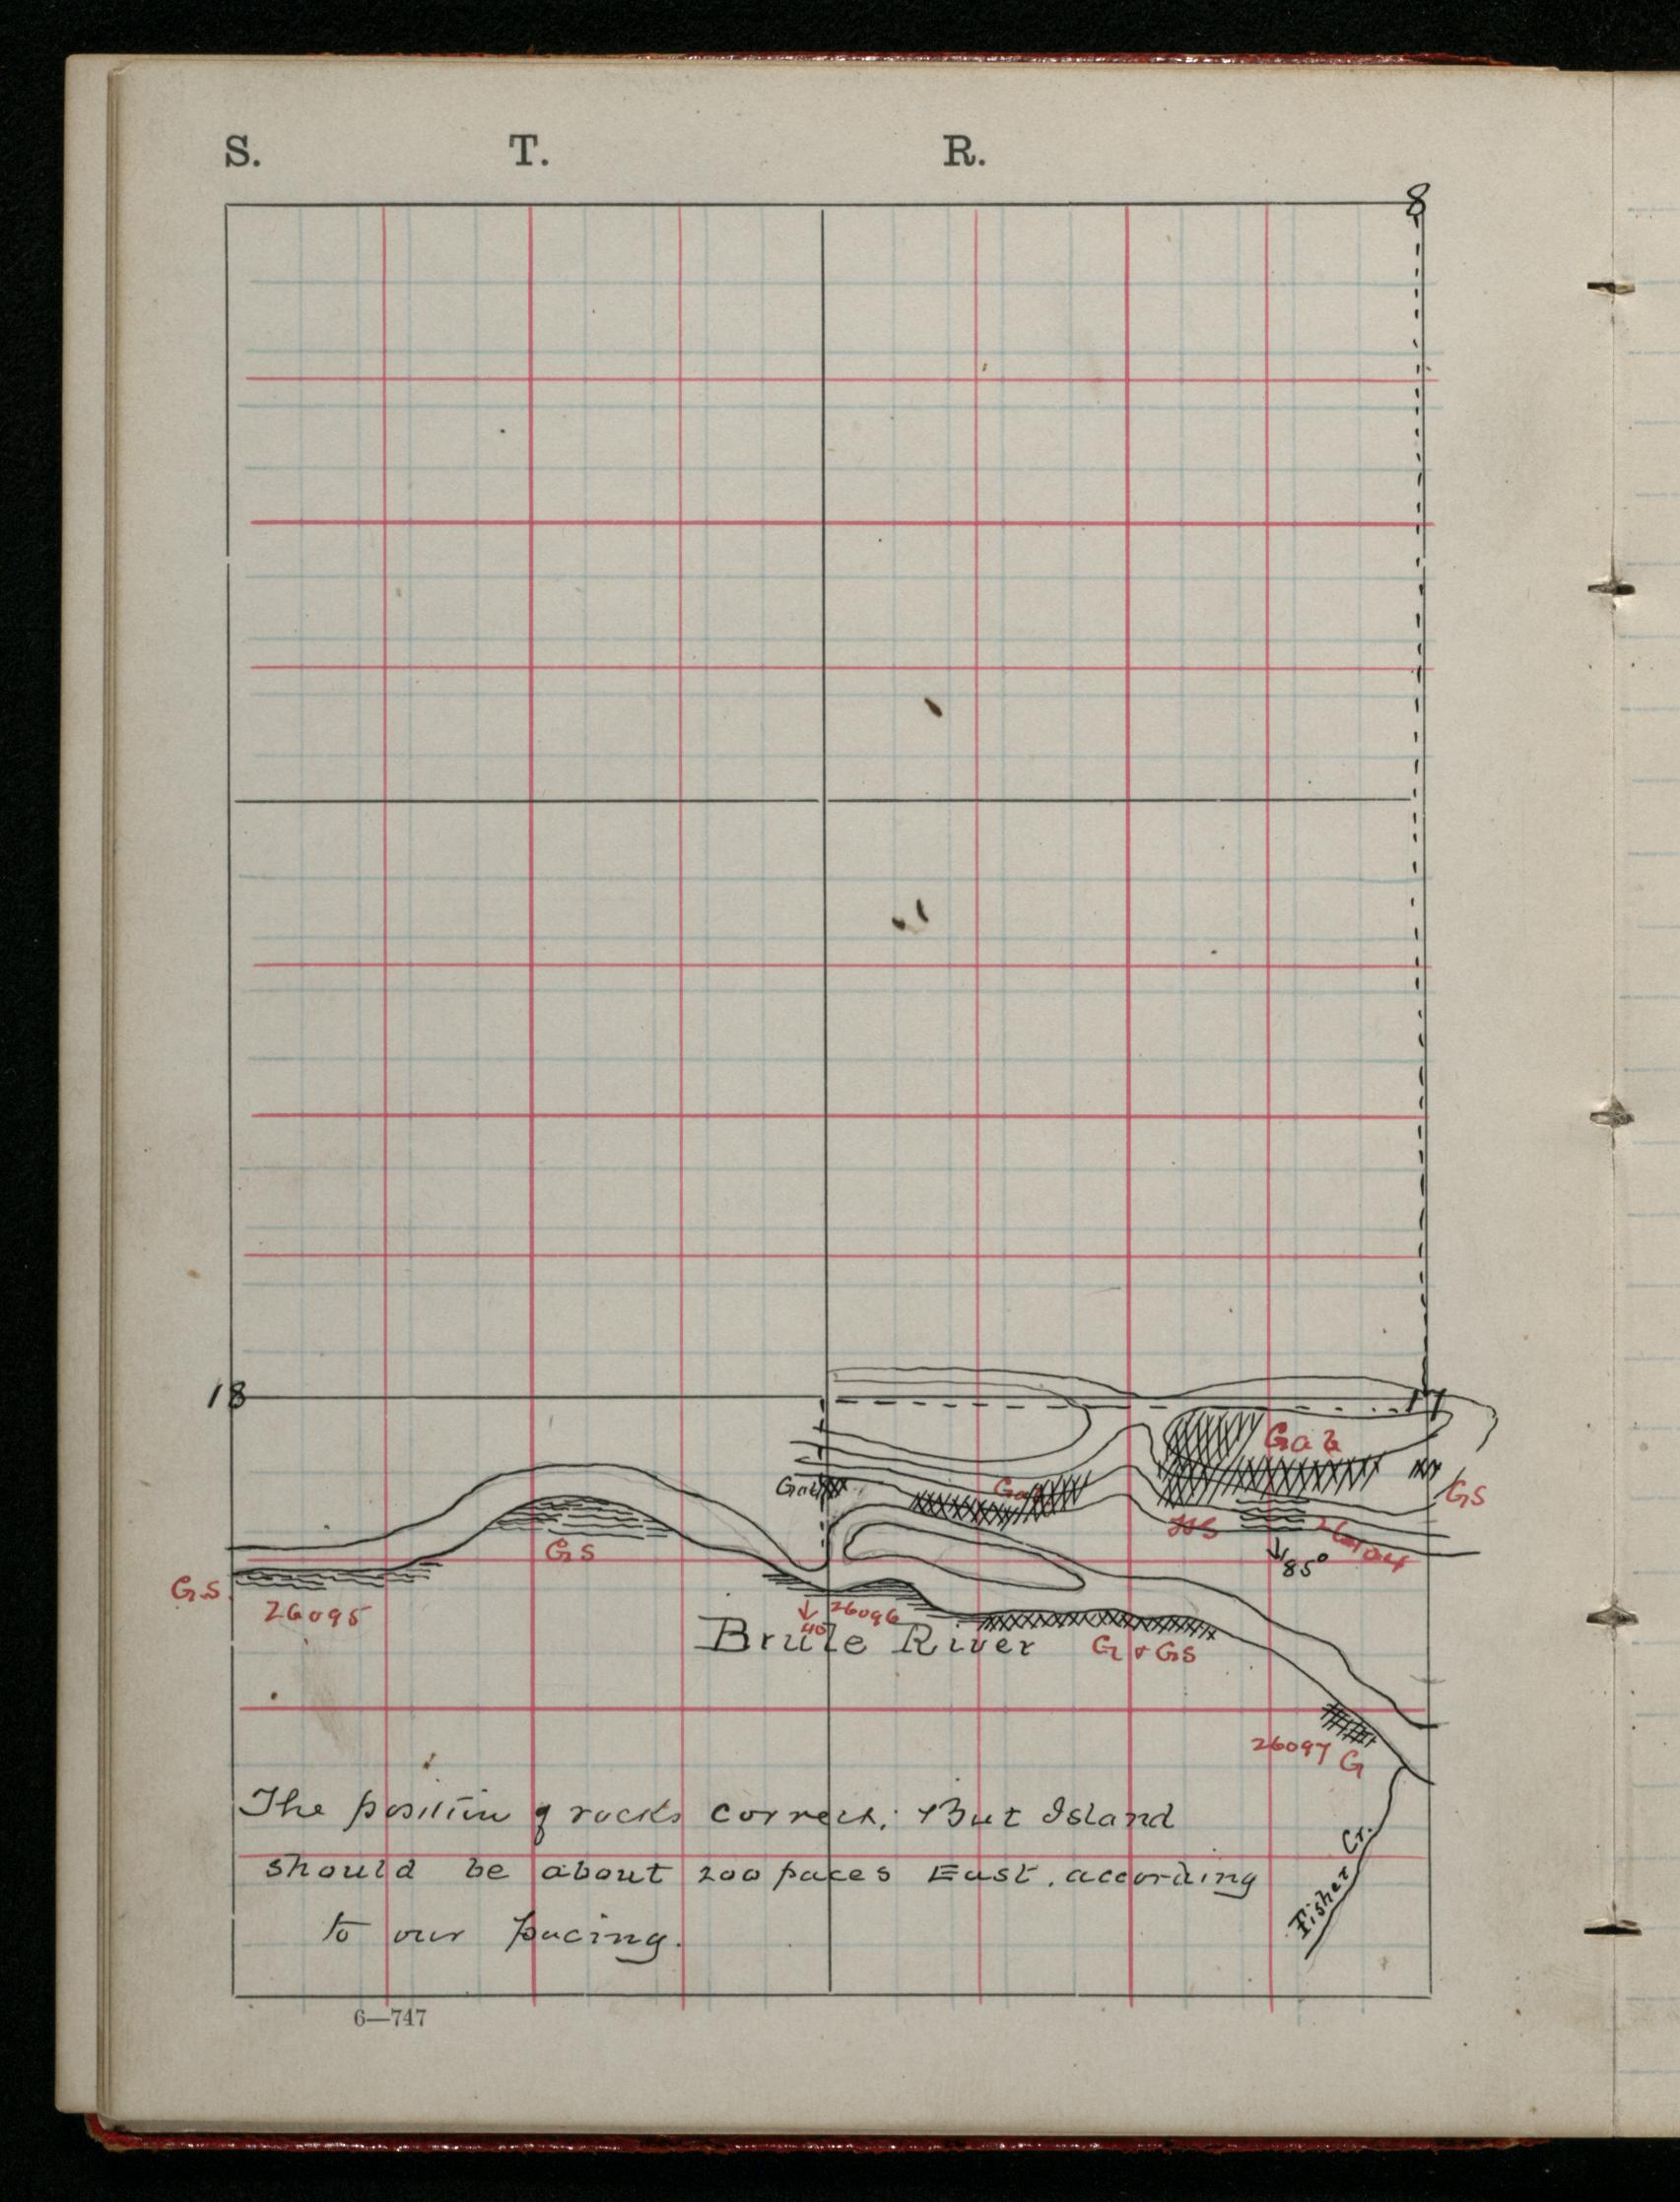 S. T. R.
8
18 17
Gab
Gab
GS
Gab
GS
26104
85°
GS
26095
26096
40
Brule River
G & GS
26097 G
The position of rocks correct; But Island
should be about 200 paces East, according
to our pacing.
Fisher Cr.
6—747